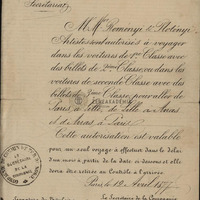 Secrétariat
M.M. Reményi & Plotényi,
Artistes sont autorisés à voyager
dans les voitures de 1ère Classe avec
des billets de 2ème Classe, ou dans les
voitures de seconde Classe avec des
billets de 3ème Classe, pour aller de
Paris à Lille, de Lille à Arras
et d'Arras à Paris.
Cette autorisation est valable
pour un seul voyage à effectuer dans le délai
d'un mois à partir de la date ci-dessous et elle
devra être retirée au Contrôle à l'arrivée.
Paris, le 12 Avril 1877
Le Secrétaire de la Compagnie
SECRÉTARIAT
DE LA
COMPAGNIE